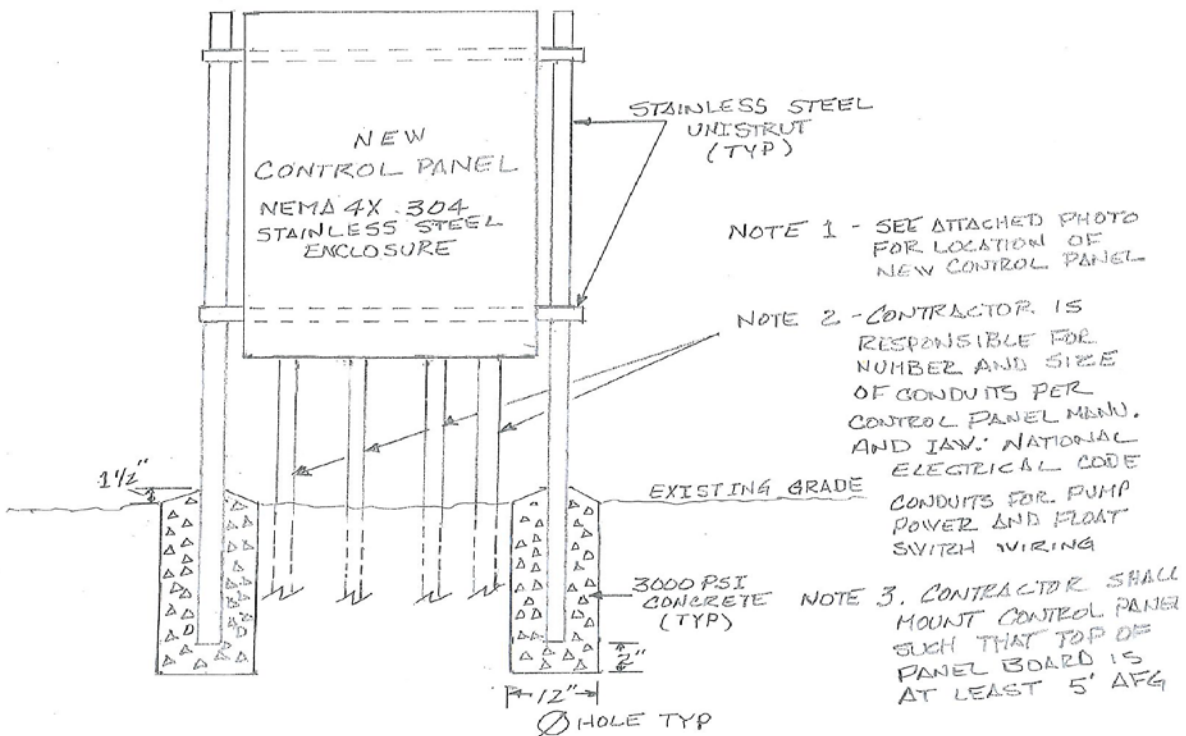 NEW
CONTROL PANEL
NEMA 4X .304
STAINLESS STEEL
ENCLOSURE
STAINLESS STEEL
UNISTRUT
(TYP)
NOTE 1 - SEE ATTACHED PHOTO
FOR LOCATION OF
NEW CONTROL PANEL
NOTE 2 - CONTRACTOR IS
RESPONSIBLE FOR
NUMBER AND SIZE
OF CONDUITS PER
CONTROL PANEL MANU.
AND IAW: NATIONAL
ELECTRICAL CODE
CONDUITS FOR PUMP
POWER AND FLOAT
SWITCH WIRING
1 1/2"
EXISTING GRADE
3000 PSI
CONCRETE
(TYP)
NOTE 3. CONTRACTOR SHALL
MOUNT CONTROL PANEL
SUCH THAT TOP OF
PANEL BOARD IS
AT LEAST 5' AFG
2"
12"
Ø HOLE TYP